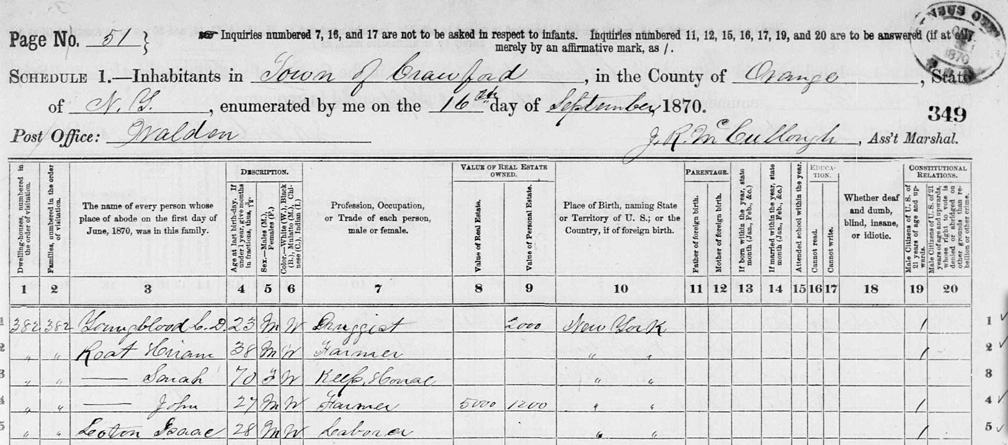 Page No. 51 } ☞ Inquiries numbered 7, 16, and 17 are not to be asked in respect to infants. Inquiries numbered 11, 12, 15, 16, 17, 19, and 20 are to be answered (if at all)
merely by an affirmative mark, as /.
SCHEDULE 1.—Inhabitants in Town of Crawford, in the County of Orange, State
of N.Y., enumerated by me on the 16th day of September, 1870.
349
Post Office: Walden J. R. McCullough, Ass't Marshal.
Dwelling-houses, numbered in the order of visitation.
Families, numbered in the order of visitation.
The name of every person whose place of abode on the first day of June, 1870, was in this family.
DESCRIPTION.
Age at last birth-day. If under 1 year, give months in fractions, thus,
Sex.—Males (M.), Females (F.)
Color.—White (W.), Black (B.), Mulatto (M.), Chinese (C.), Indian (I.)
Profession, Occupation, or Trade of each person, male or female.
VALUE OF REAL ESTATE OWNED.
Value of Real Estate.
Value of Personal Estate.
Place of Birth, naming State or Territory of U. S.; or the Country, if of foreign birth.
PARENTAGE.
Father of foreign birth.
Mother of foreign birth.
If born within the year, state month (Jan., Feb., &c.)
If married within the year, state month (Jan., Feb., &c.)
Attended school within the year.
EDUCATION.
Cannot read.
Cannot write.
Whether deaf and dumb, blind, insane, or idiotic.
CONSTITUTIONAL RELATIONS.
Male Citizens of U. S. of 21 years of age and upwards.
Male Citizens of U. S. of 21 years of age and upwards, whose right to vote is denied or abridged on other grounds than rebellion or other crime.
1 2 3 4 5 6 7 8 9 10 11 12 13 14 15 16 17 18 19 20
1 382 382 Youngblood C. D. 23 M W Druggist 2000 New York / 1
2 " " Roat Hiram 38 M W Farmer " " / 2
3 " " — Sarah 70 F W Keeps House " " 3
4 " " — John 27 M W Farmer 5000 1200 " " / 4
5 " " Isaac 28 M W Laborer " " / 5